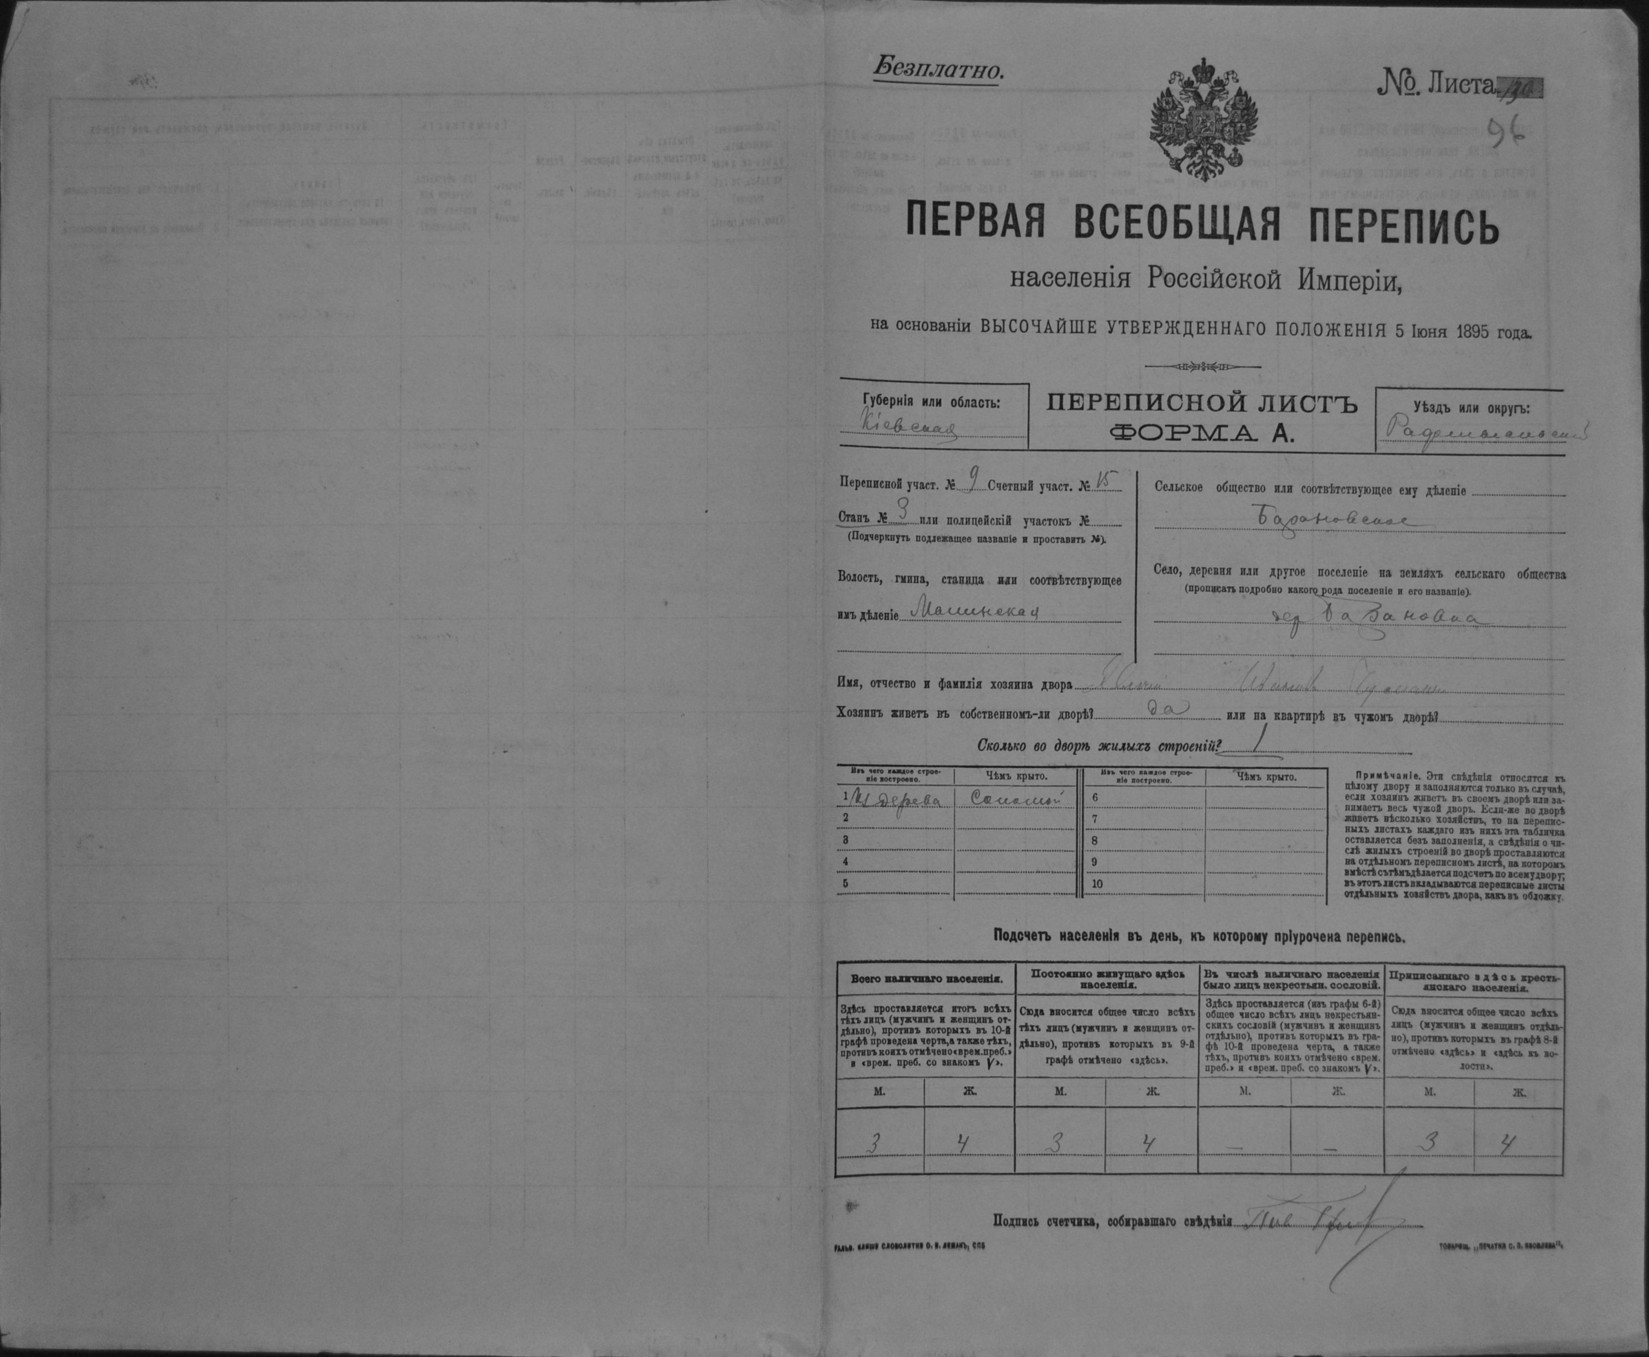 Безплатно.
№. Листа
96
ПЕРВАЯ ВСЕОБЩАЯ ПЕРЕПИСЬ
населенія Россійской Имперіи,
на основаніи ВЫСОЧАЙШЕ УТВЕРЖДЕННАГО ПОЛОЖЕНІЯ 5 Іюня 1895 года.
Губернія или область:
Кіевская
ПЕРЕПИСНОЙ ЛИСТЪ
ФОРМА А.
Уѣздъ или округъ:
Радомысльскій
Переписной участ. № 9 Счетный участ. № 15
Станъ № 3 или полицейскій участокъ №
(Подчеркнуть подлежащее названіе и проставить №).
Волость, гмина, станица или соотвѣтствующее
имъ дѣленіе Малинская
Сельское общество или соотвѣтствующее ему дѣленіе
Село, деревня или другое поселеніе на земляхъ сельскаго общества
(прописать подробно какого рода поселеніе и его названіе).
дер
Имя, отчество и фамилія хозяина двора
Хозяинъ живетъ въ собственномъ-ли дворѣ? да или на квартирѣ въ чужомъ дворѣ?
Сколько во дворѣ жилыхъ строеній? 1
Изъ чего каждое строе-
ніе построено.
Чѣмъ крыто.
Изъ чего каждое строе-
ніе построено.
Чѣмъ крыто.
1 Из дерева Соломой 6
2 7
3 8
4 9
5 10
Примѣчаніе. Эти свѣдѣнія относятся къ
цѣлому двору и заполняются только въ случаѣ,
если хозяинъ живетъ въ своемъ дворѣ или за-
нимаетъ весь чужой дворъ. Если-же во дворѣ
живетъ нѣсколько хозяйствъ, то на перепис-
ныхъ листахъ каждаго изъ нихъ эта табличка
оставляется безъ заполненія, а свѣдѣнія о чи-
слѣ жилыхъ строеній во дворѣ проставляются
на отдѣльномъ переписномъ листѣ, на которомъ
вмѣстѣ съ тѣмъ дѣлается подсчетъ по всему двору;
въ этотъ листъ вкладываются переписные листы
отдѣльныхъ хозяйствъ двора, какъ въ обложку.
Подсчетъ населенія въ день, къ которому пріурочена перепись.
Всего наличнаго населенія.
Здѣсь проставляется итогъ всѣхъ
тѣхъ лицъ (мужчинъ и женщинъ от-
дѣльно), противъ которыхъ въ 10-й
графѣ проведена черта, а также тѣхъ,
противъ коихъ отмѣчено «врем. преб.»
и «врем. преб. со знакомъ V».
Постоянно живущаго здѣсь
населенія.
Сюда вносится общее число всѣхъ
тѣхъ лицъ (мужчинъ и женщинъ от-
дѣльно), противъ которыхъ въ 9-й
графѣ отмѣчено «здѣсь».
Въ числѣ наличнаго населенія
было лицъ некрестьян. сословій.
Здѣсь проставляется (изъ графы 6-й)
общее число всѣхъ лицъ некрестьян-
скихъ сословій (мужчинъ и женщинъ
отдѣльно), противъ которыхъ въ гра-
фѣ 10-й проведена черта, а также
тѣхъ, противъ коихъ отмѣчено «врем.
преб.» и «врем. преб. со знакомъ V».
Приписаннаго здѣсь кресть-
янскаго населенія.
Сюда вносится общее число всѣхъ
лицъ (мужчинъ и женщинъ отдѣль-
но), противъ которыхъ въ графѣ 8-й
отмѣчено «здѣсь» и «здѣсь въ во-
лости».
М. Ж. М. Ж. М. Ж. М. Ж.
3 4 3 4 — — 3 4
Подпись счетчика, собиравшаго свѣдѣнія